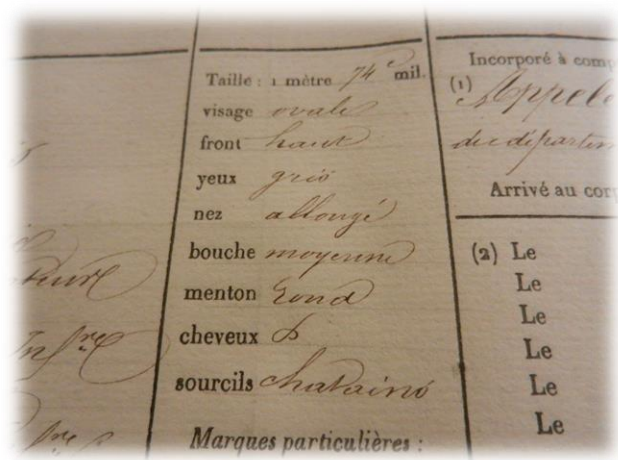 Taille : 1 mètre 74 c mil.
visage ovale
front haut
yeux gris
nez allongé
bouche moyenne
menton rond
cheveux &
sourcils chatains
Marques particulières :
Incorporé à comp
(1) Appelé
du départem
Arrivé au corp
(2) Le
Le
Le
Le
Le
Le